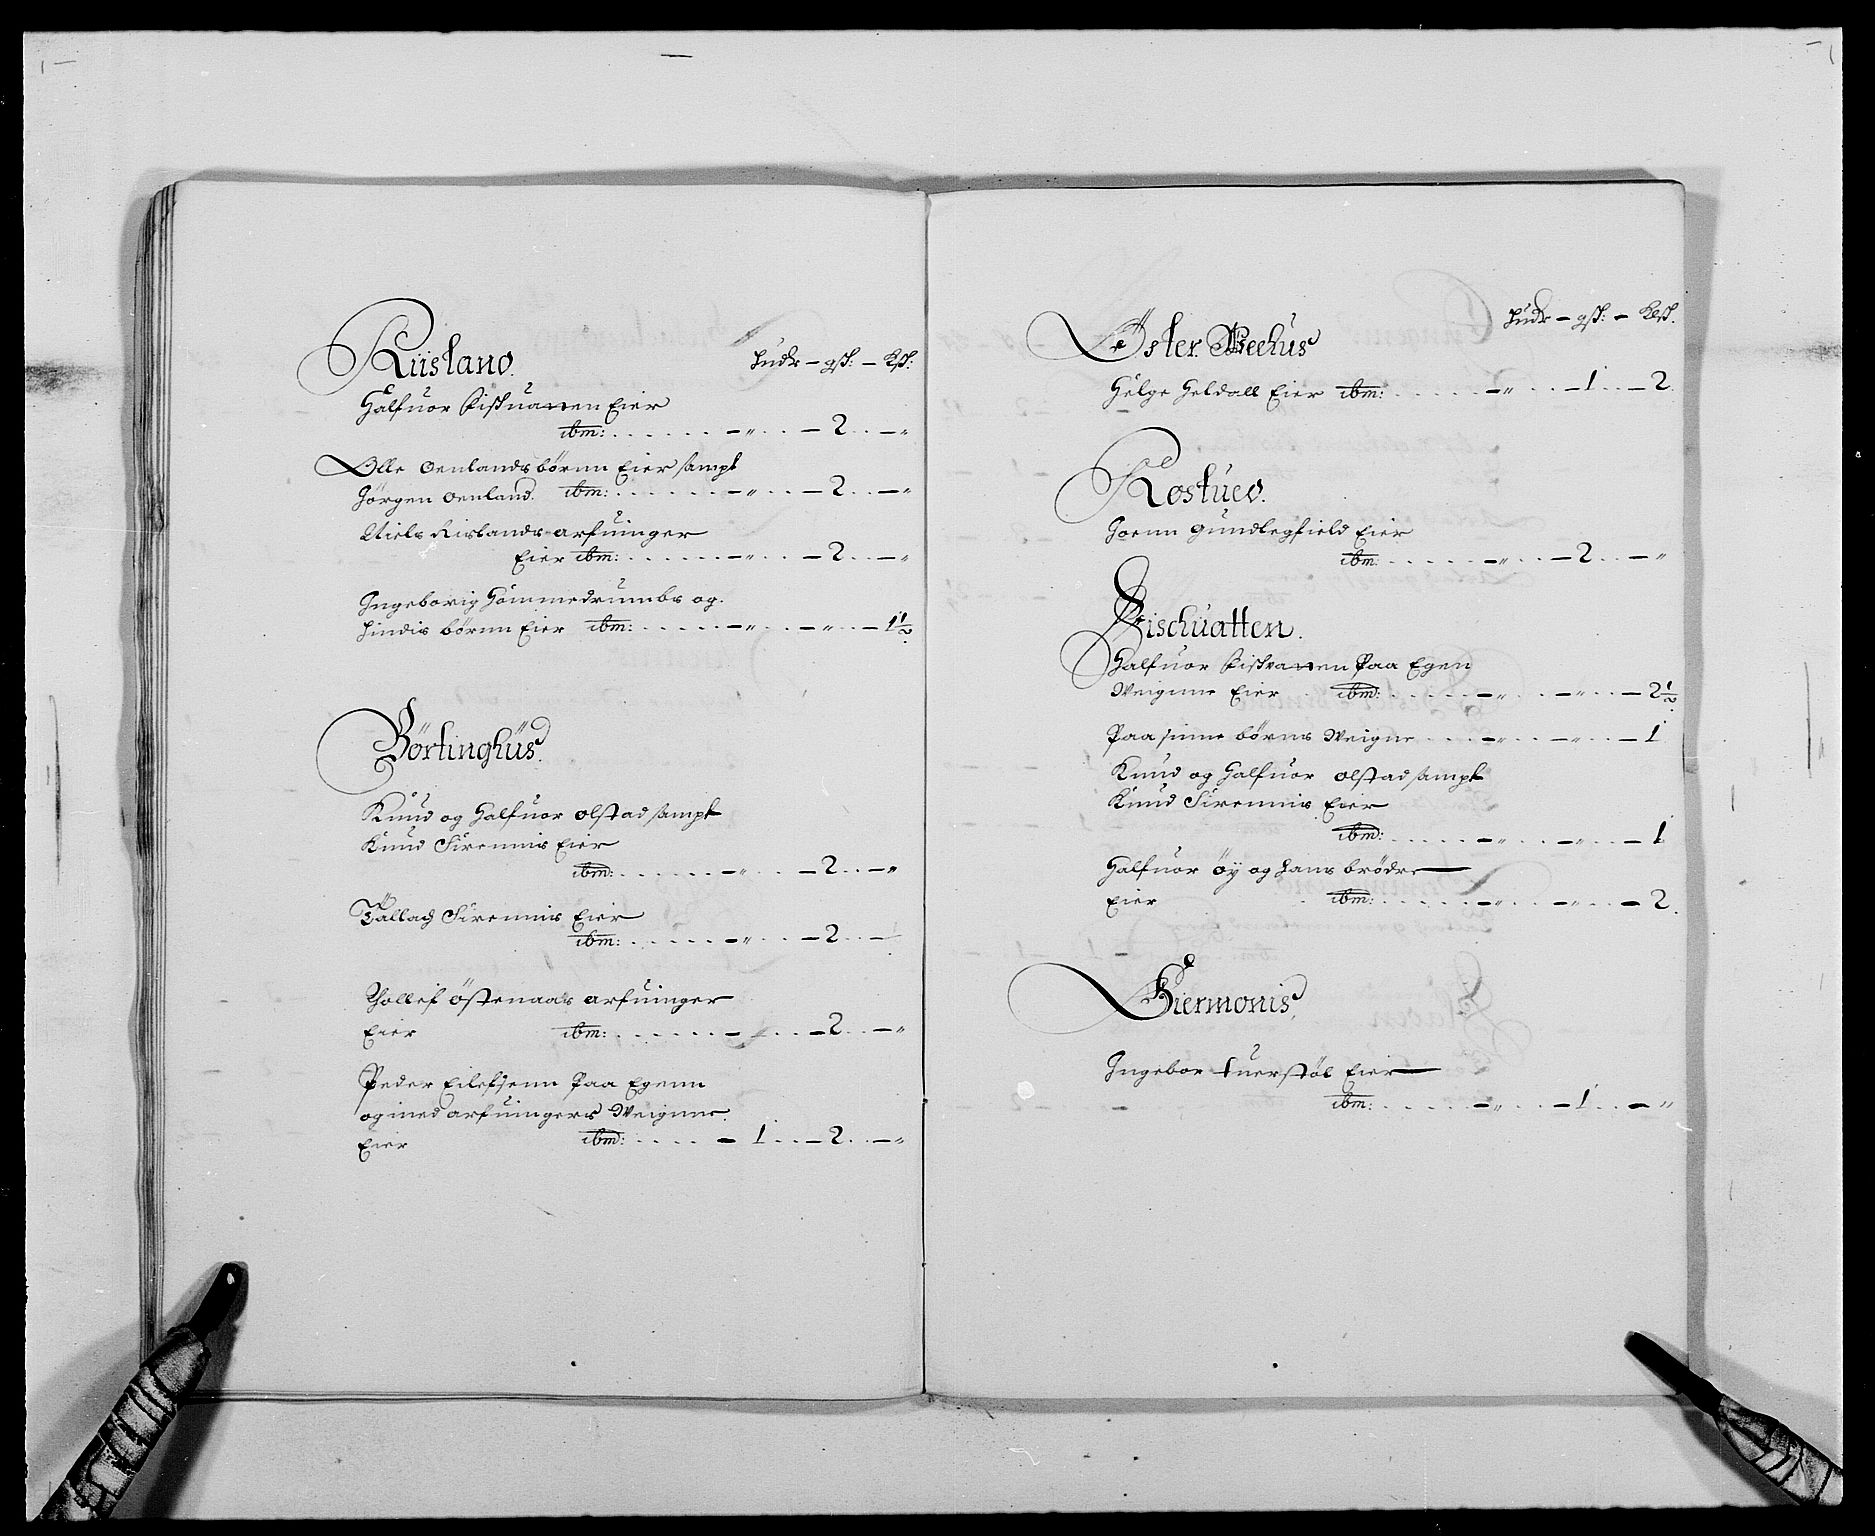 Riisland.
hudr – gß: – Kß:
Halfuor Fiskuatten Eier
ibm: . . . . . . – „ . . . – 2 . . – „
Olle Oenlands børnn Eier sampt
Jørgen oenland. ibm: . . . . . . – „ . . . – 2 . . – „
Niels Rislands arfuinger
Eier ibm: . . . . . . – „ . . . – 2 . . – „
Ingeborig Hommedrumbs og
hindis børnn Eier ibm: . . . . . – „ . . . – „ . . – 1½
Børtinghüs.
Knud og Halfuor olstad sampt
Knud Firemnis Eier
ibm: . . . . . . – „ . . . – 2 . . – „
Tallach Firemnis Eier
ibm: . . . . . . – „ . . . – 2 . . –
Thollef østenaas arfuinger
Eier ibm: . . . . . . – . . . – 2 . . – „
Peder Eilefsenn Paa Egenn
og med arfuingers Weignne
Eier ibm: . . . . . – 1 . . . – 2 . . – „
hudr – gß: – Kß.
Øster
Helge Heldall Eier ibm: . . . . . – „ . . . – 1 . . – 2.
Rostued.
Joenn gundlegfield Eier
ibm: . . . . . – „ . . . – 2 . . – „
Fischuatten.
Halfuor Fiskvatten Paa Egen
Weignne Eier ibm: . . . . . – „ . . . – „ . . – 2½
Paa sinne børns Weigne . . . . – „ . . . – „ . . – 1
Knud og Halfuor olstad sampt
Knud Firemnis Eier
ibm: . . . . . – „ . . . – „ . . – 1
Halfuor øÿ og hans brødre
Eier ibm: . . . . . – „ . . . – „ . . – 2.
Fiermonis.
Ingebor tuerstøl Eier
ibm: . . . . . – „ . . . – 1 . . – „